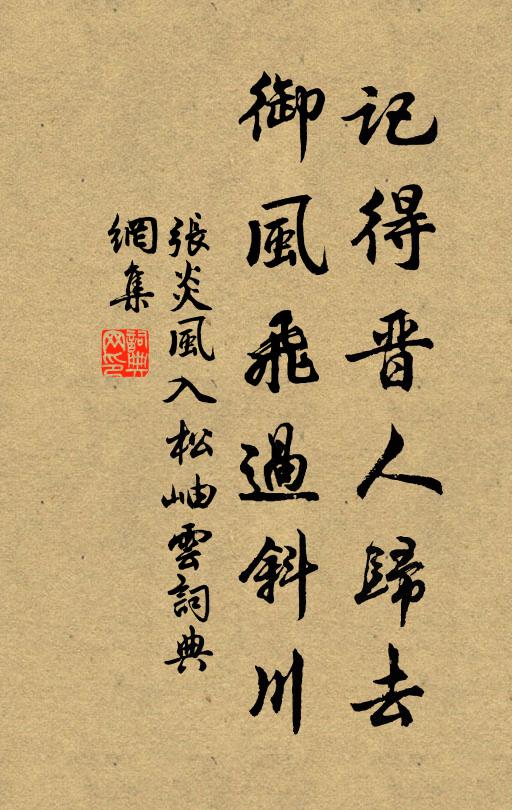 記得晋人歸去
御風飛過斜川
張炎風入松岫雲詞典
網集
詞典
网印